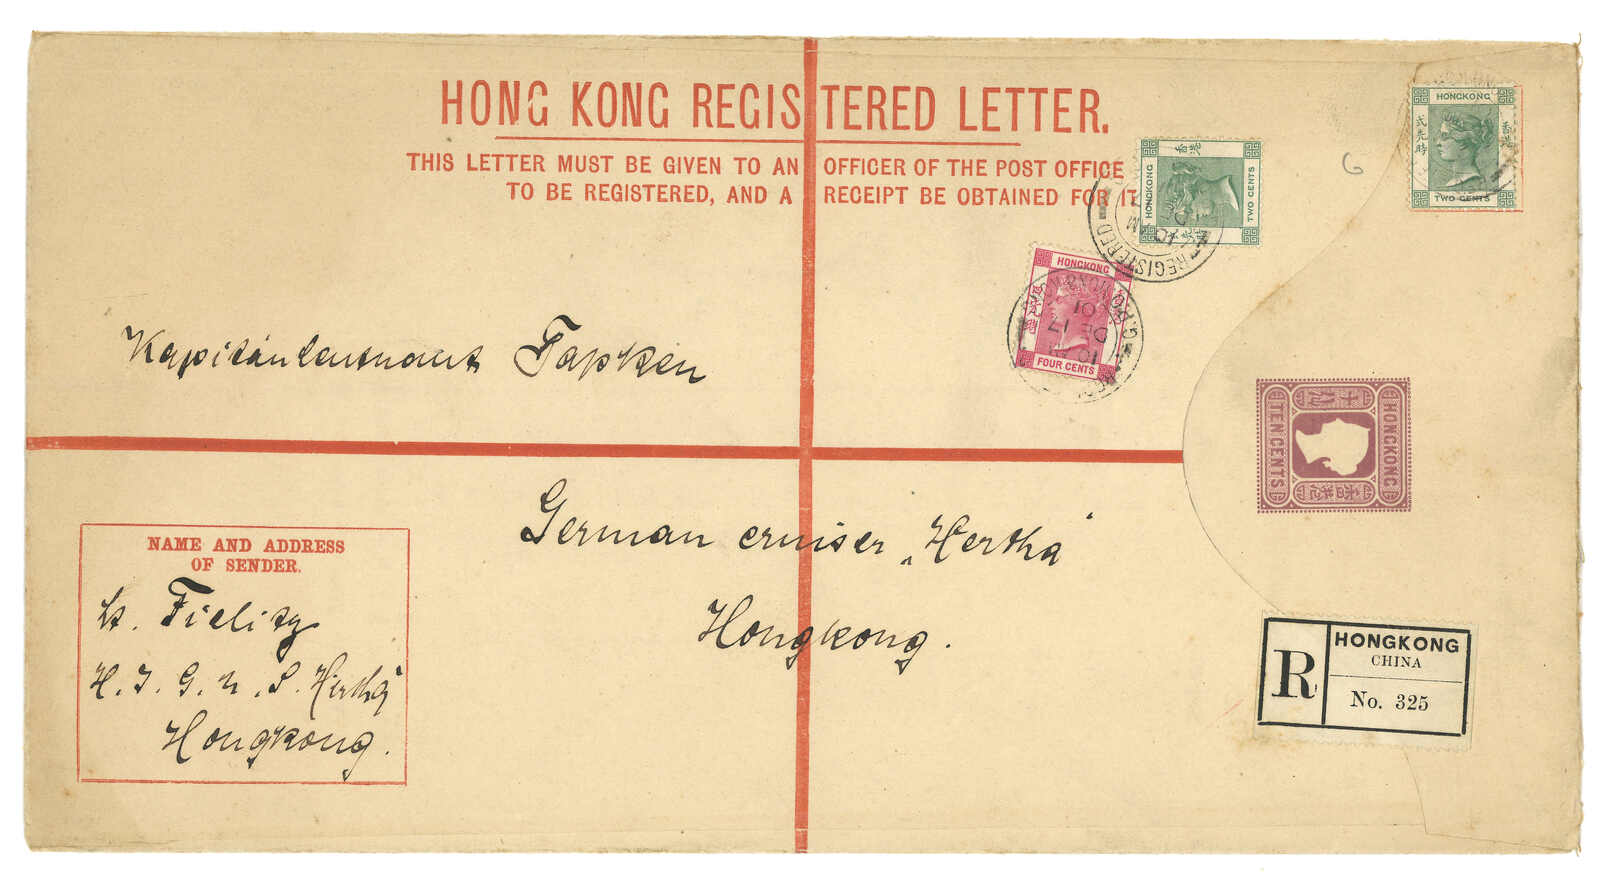 HONG KONG REGISTERED LETTER.
THIS LETTER MUST BE GIVEN TO AN OFFICER OF THE POST OFFICE
TO BE REGISTERED, AND A RECEIPT BE OBTAINED FOR IT
HONGKONG
香港
TWO CENTS
HONGKONG
香港
弍先時
TWO CENTS
6
REGISTERED
HONGKONG
FOUR CENTS
REGISTERED G.P.O. HONGKONG
10 AM
DE 17
01
Kapitänleutnant Tapken
HONGKONG
TEN CENTS
香港
German cruiser „Hertha“
Hongkong.
NAME AND ADDRESS
OF SENDER.
Lt. Fielitz
H. I. G. M. S. Hertha
Hongkong.
R
HONGKONG
CHINA
No. 325